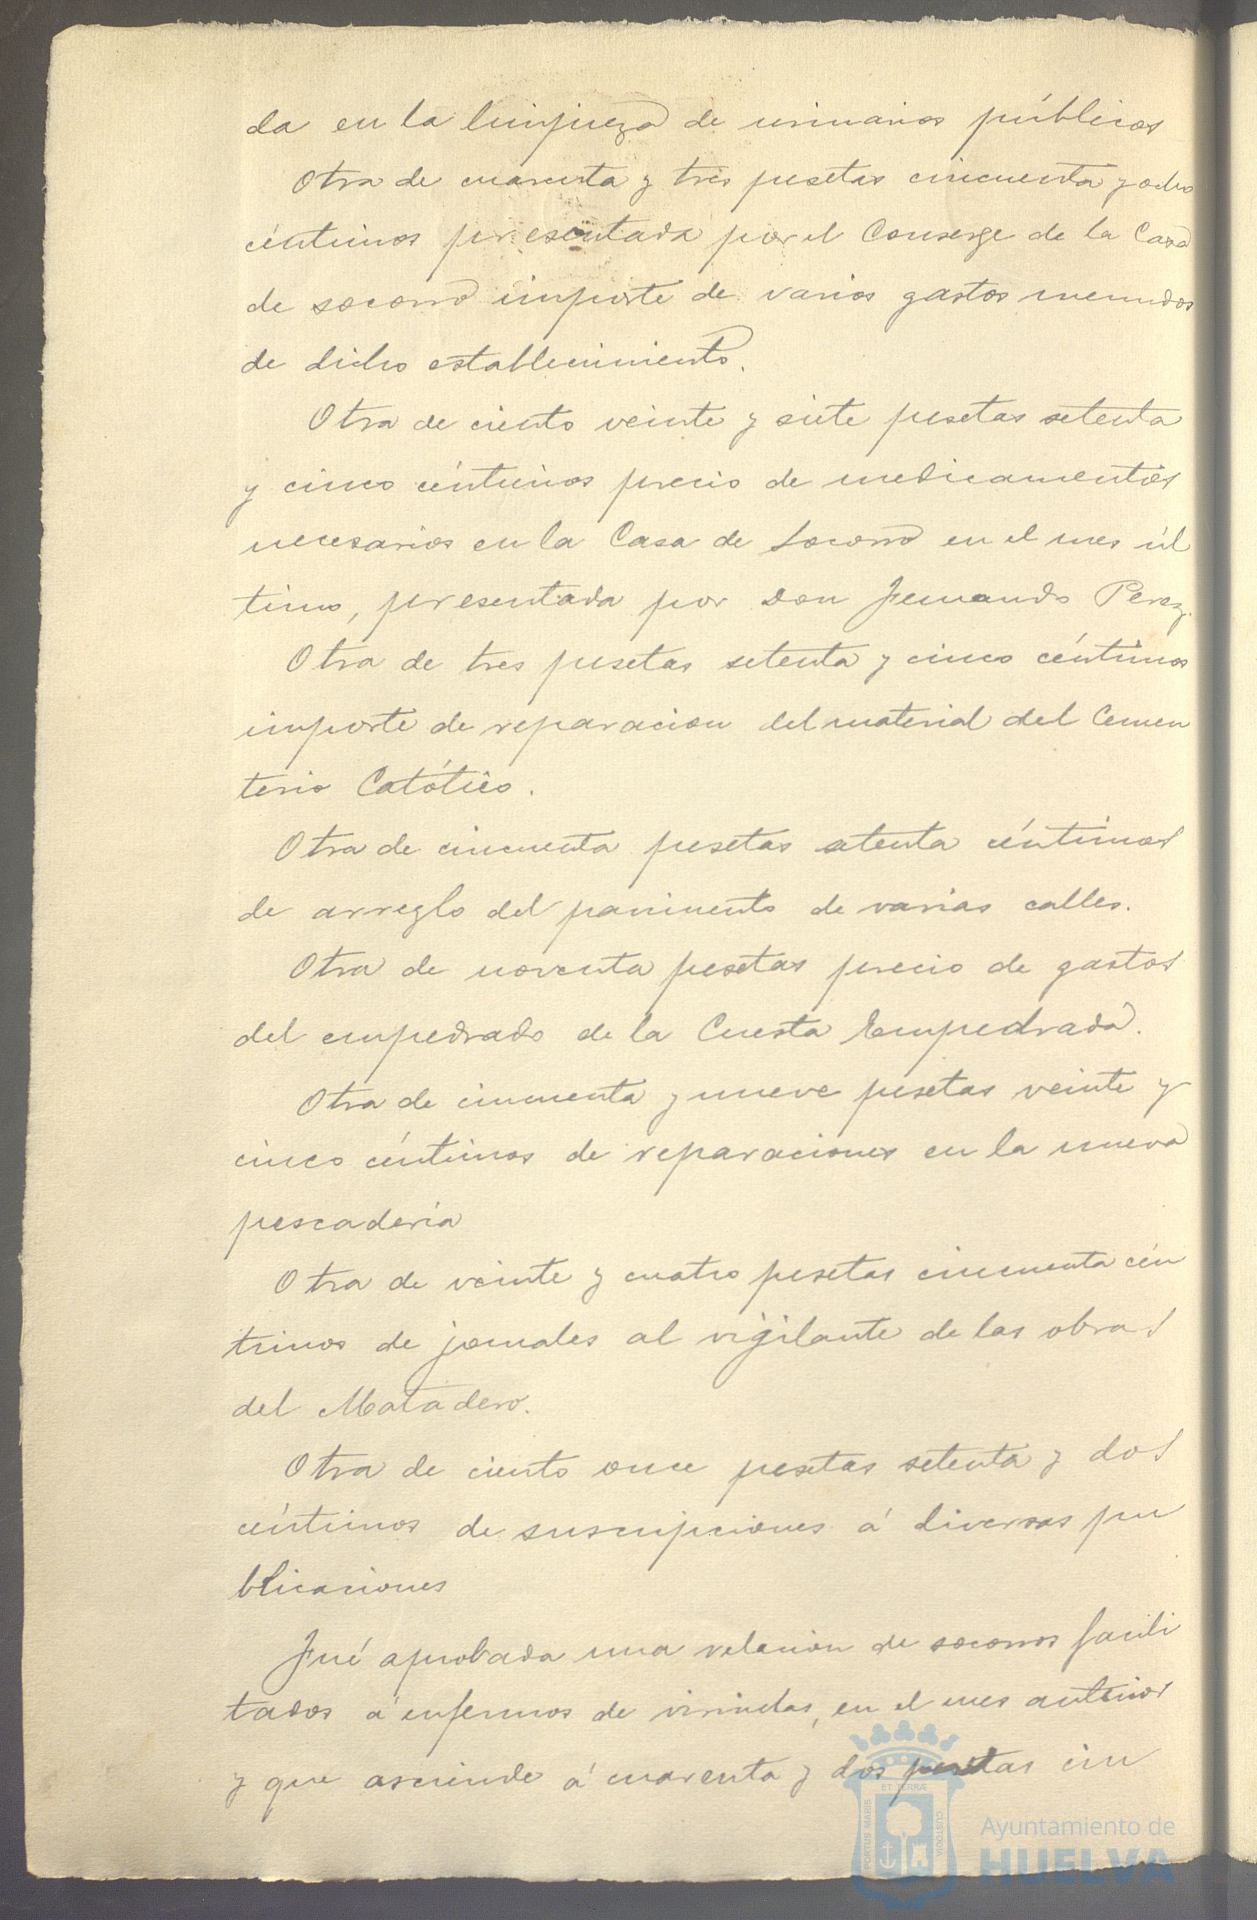 da en la limpieza de urinarios públicos
Otra de cuarenta y tres pesetas cincuenta y ocho
céntimos presentada por el Conserge de la Casa
de socorro importe de varios gastos menudos
de dicho establecimiento.
Otra de ciento veinte y siete pesetas setenta
y cinco céntimos precio de medicamentos
necesarios en la Casa de Socorro en el mes úl
timo, presentada por Don Fernando Perez.
Otra de tres pesetas setenta y cinco céntimos
importe de reparacion del material del Cemen
terio Católico.
Otra de cincuenta pesetas setenta céntimos
de arreglo del pavimento de varias calles.
Otra de noventa pesetas precio de gastos
del empedrado de la Cuesta Empedrada.
Otra de cincuenta y nueve pesetas veinte y
cinco céntimos de reparaciones en la nueva
pescadería
Otra de veinte y cuatro pesetas cincuenta cén
timos de jornales al vigilante de las obras
del Matadero.
Otra de ciento once pesetas setenta y dos
céntimos de suscripciones á diversas pu
blicaciones
Fué aprobada una relacion de socorros facili
tados á enfermos de viruelas, en el mes anterior
y que asciende á cuarenta y dos pesetas cin
PORTUS MARIS ET TERRÆ CUSTODIA
Ayuntamiento de
HUELVA